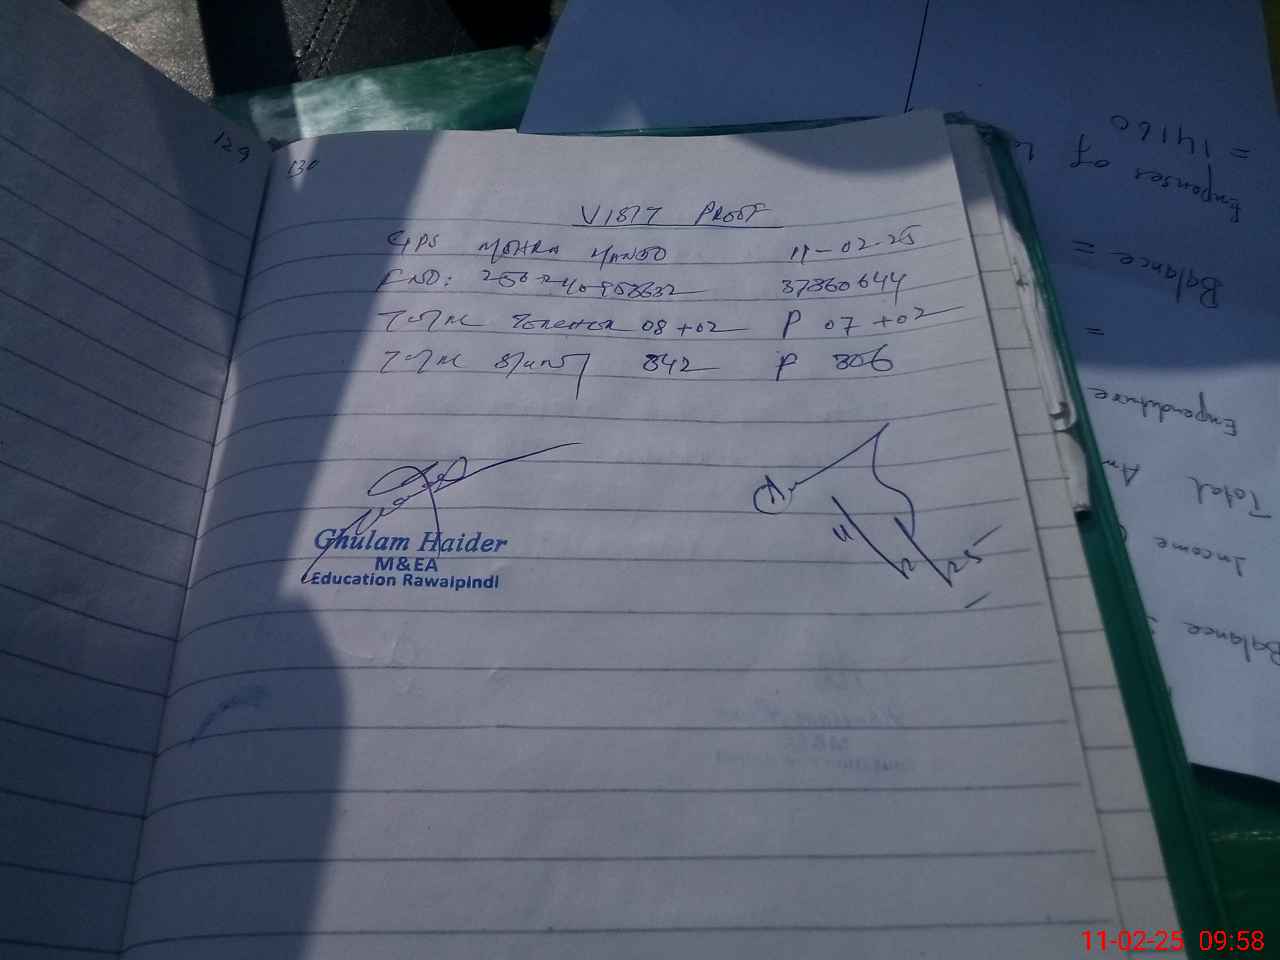 129
130
VISIT PROOF
GPS MOHRA 11-02-25
F NO: 37360644
TOTAL TEACHER 08+02 P 07+02
TOTAL STUDENT 342 P 306
Ghulam Haider
M&EA
Education Rawalpindi
11/2/25
= 14160
Expenses of
Balance =
=
Expenditure
Total Am
Income
Balance =
11-02-25 09:58